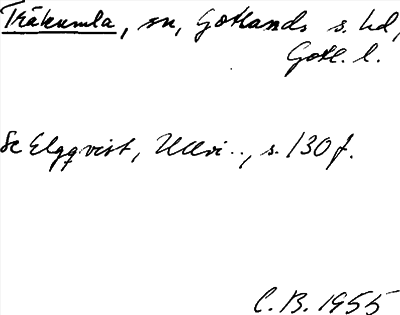 Träkumla, sn, Gotlands s. hd,
Gotl. l.
Se Elgqvist, Ullvi.., s. 130 f.
C. B. 1955